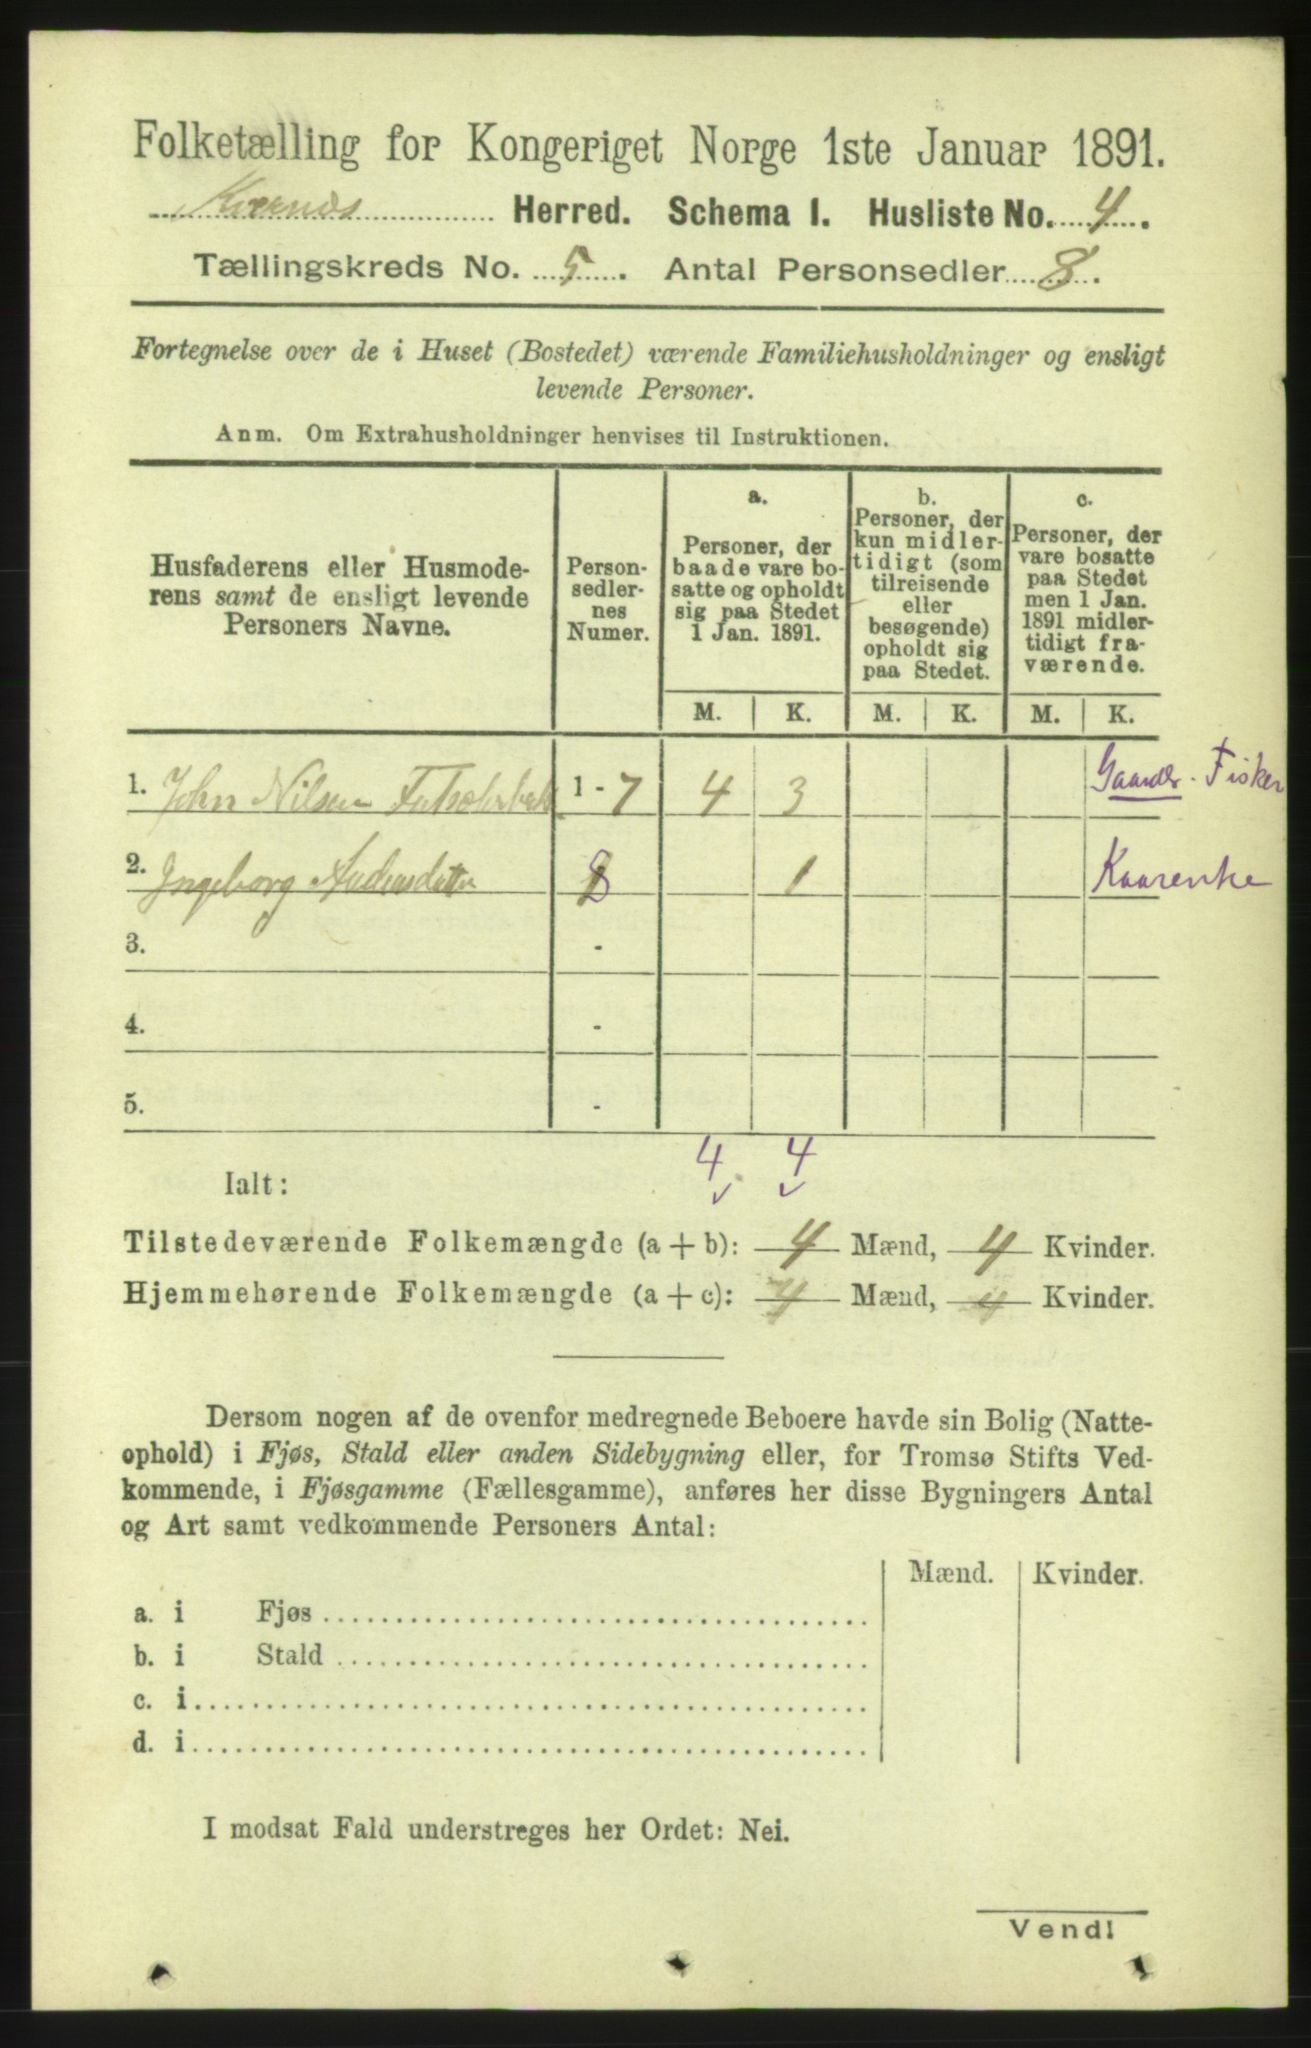 Folketælling for Kongeriget Norge 1ste Januar 1891.
Kvernes Herred. Schema I. Husliste No. 4.
Tællingskreds No. 5. Antal Personsedler 8.
Fortegnelse over de i Huset (Bostedet) værende Familiehusholdninger og ensligt
levende Personer.
Anm. Om Extrahusholdninger henvises til Instruktionen.
Husfaderens eller Husmode-
rens samt de ensligt levende
Personers Navne.
Person-
sedler-
nes
Numer.
a.
Personer, der
baade vare bo-
satte og opholdt
sig paa Stedet
1 Jan. 1891.
b.
Personer, der
kun midler-
tidigt (som
tilreisende
eller
besøgende)
opholdt sig
paa Stedet.
c.
Personer, der
vare bosatte
paa Stedet
men 1 Jan.
1891 midler-
tidigt fra-
værende.
M. K. M. K. M. K.
1. John Nilsen 1 - 7 4 3 Gaardbr. Fisker
2. Ingeborg Andersdatter 8 1 Kaarenke
3. -
4. -
5. -
4 4
Ialt:
Tilstedeværende Folkemængde (a + b): 4 Mænd, 4 Kvinder.
Hjemmehørende Folkemængde (a + c): 4 Mænd, 4 Kvinder.
Dersom nogen af de ovenfor medregnede Beboere havde sin Bolig (Natte-
ophold) i Fjøs, Stald eller anden Sidebygning eller, for Tromsø Stifts Ved-
kommende, i Fjøsgamme (Fællesgamme), anføres her disse Bygningers Antal
og Art samt vedkommende Personers Antal:
Mænd. Kvinder.
a. i Fjøs
b. i Stald
c. i
d. i
I modsat Fald understreges her Ordet: Nei.
Vend!